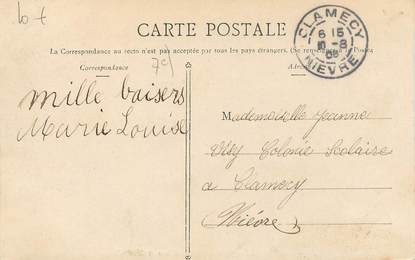 CARTE POSTALE
La Correspondance au recto n'est pas acceptée par tous les pays étrangers. (Se renseigner à la Poste)
Correspondance
Adresse
CLAMECY
6 15
10 -8
08
NIEVRE
mille baisers
Marie Louise
Mademoiselle Jeanne
Colonie Scolaire
a Clamecy
(Nièvre)